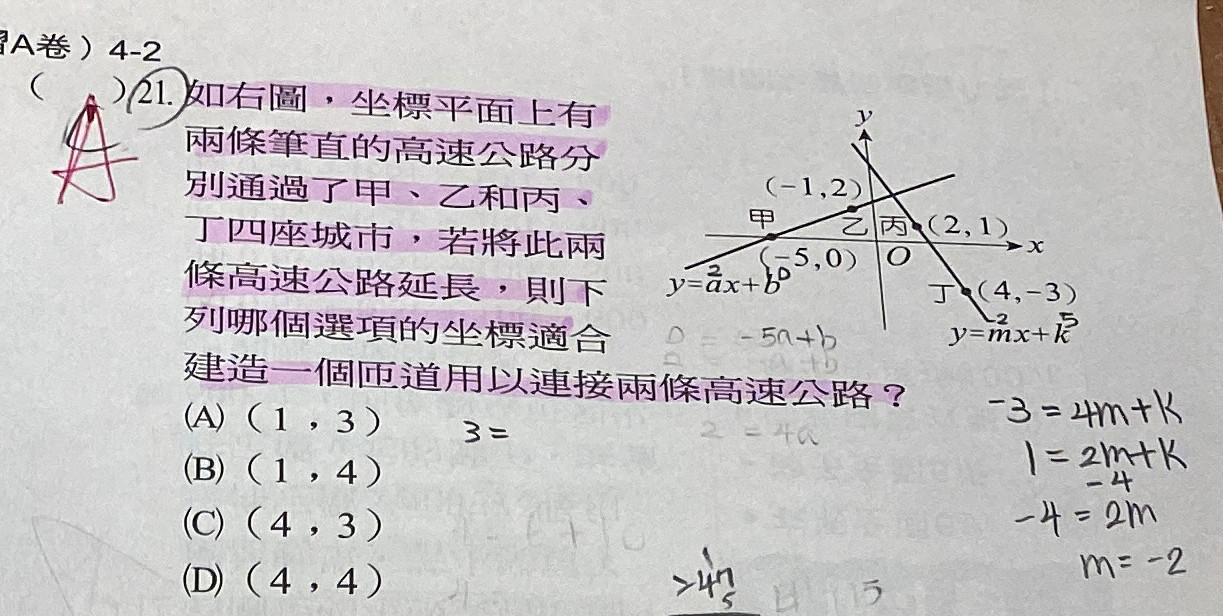 習A卷）4-2
(　)21.如右圖，坐標平面上有
A
兩條筆直的高速公路分
別通過了甲、乙和丙、
丁四座城市，若將此兩
條高速公路延長，則下
列哪個選項的坐標適合
建造一個匝道用以連接兩條高速公路？
(A)（1，3）
3=
(B)（1，4）
(C)（4，3）
(D)（4，4）
y
(−1,2)
甲
乙
丙
(2,1)
x
(−5,0)
O
y=ax+b
丁
(4,−3)
y=mx+k
2
-2
5
0 = -5a+b
2 = 4a
-3 = 4m+k
1 = 2m+k
-4
-4 = 2m
m = -2